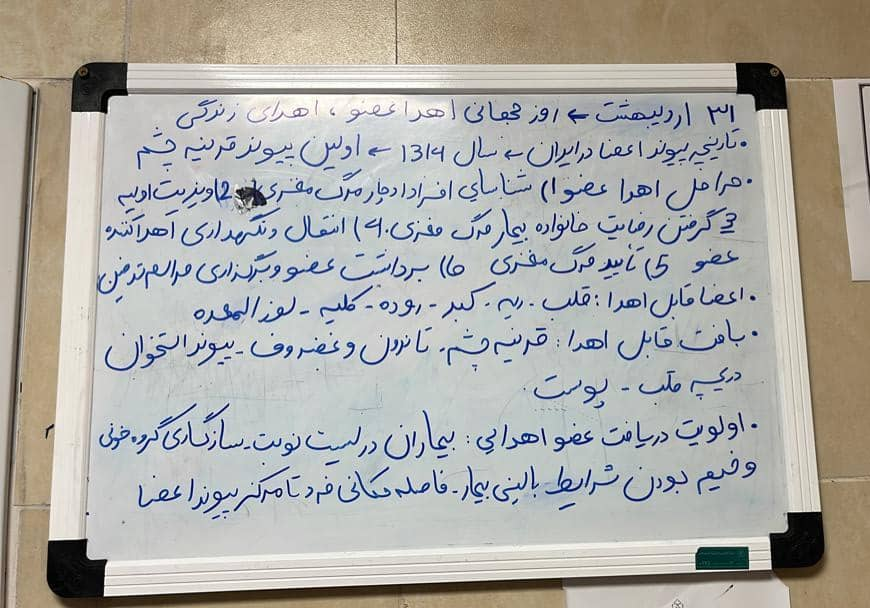 ۳۱ اردیبهشت ← روز جهانی اهدا عضو ، اهدای زندگی
• تاریخچه پیوند اعضا در ایران ← سال 1314 ← اولین پیوند قرنیه چشم
• مراحل اهدا عضو 1) شناسایی افراد دچار مرگ مغزی 2) ویزیت اولیه
3 گرفتن رضایت خانواده بیمار مرگ مغزی. 4) انتقال و نگهداری اهدا کننده
عضو 5) تأیید مرگ مغزی 6) برداشت عضو و برگزاری مراسم تدفین
• اعضا قابل اهدا : قلب - ریه - کبد - روده - کلیه - لوزالمعده
• بافت قابل اهدا : قرنیه چشم - تاندون و غضروف - پیوند استخوان
دریچه قلب - پوست
• اولویت دریافت عضو اهدایی : بیماران در لیست نوبت - سازگاری گروه خونی
وخیم بودن شرایط بالینی بیمار - فاصله مکانی فرد تا مرکز پیوند اعضا